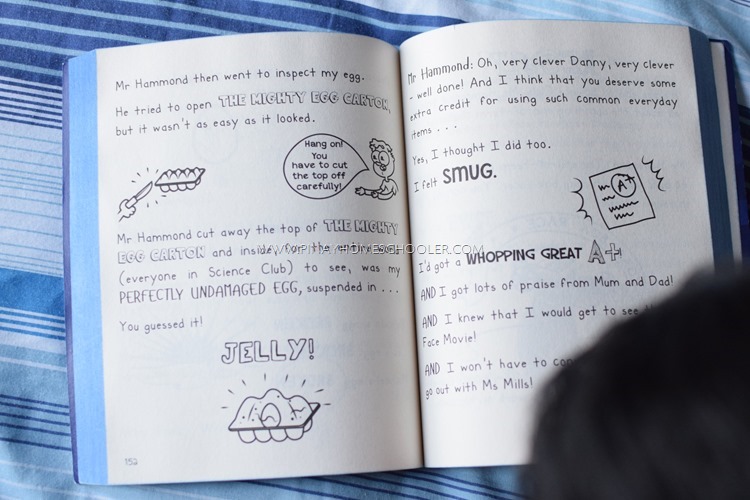 Mr Hammond then went to inspect my egg.
He tried to open THE MIGHTY EGG CARTON,
but it wasn't as easy as it looked.
Hang on!
You
have to cut
the top off
carefully!
Mr Hammond cut away the top of THE MIGHTY
EGG CARTON and inside, for
(everyone in Science Club) to see, was my
PERFECTLY UNDAMAGED EGG, suspended in . . .
You guessed it!
JELLY!
152
Mr Hammond: Oh, very clever Danny, very clever
- well done! And I think that you deserve some
extra credit for using such common everyday
items . . .
Yes, I thought I did too.
I felt SMUG.
A+
I'd got a WHOPPING GREAT A+!
AND I got lots of praise from Mum and Dad!
AND I knew that I would get to see
Face Movie!
AND I won't have to
go out with Ms Mills!
WWW.PINAYHOMESCHOOLER.COM